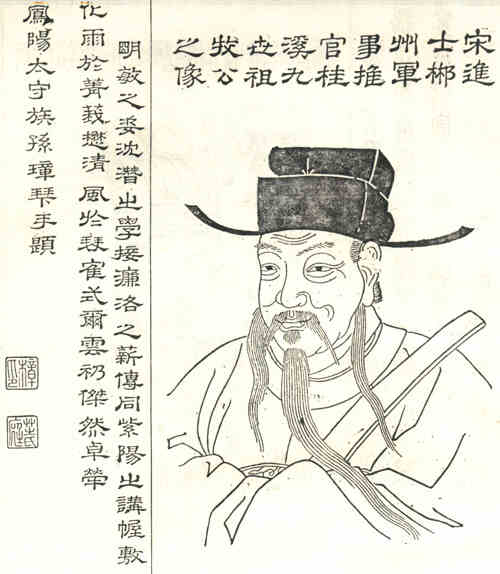 宋進
士郴
州軍
事推
官桂
溪九
世祖
公
之像
明敏之姿沈潛之學接濂洛之薪傳同紫陽之講幄敷
化雨於菁莪懋清風於琴隺式爾雲礽傑然卓犖
鳳陽太守族孫璋手題